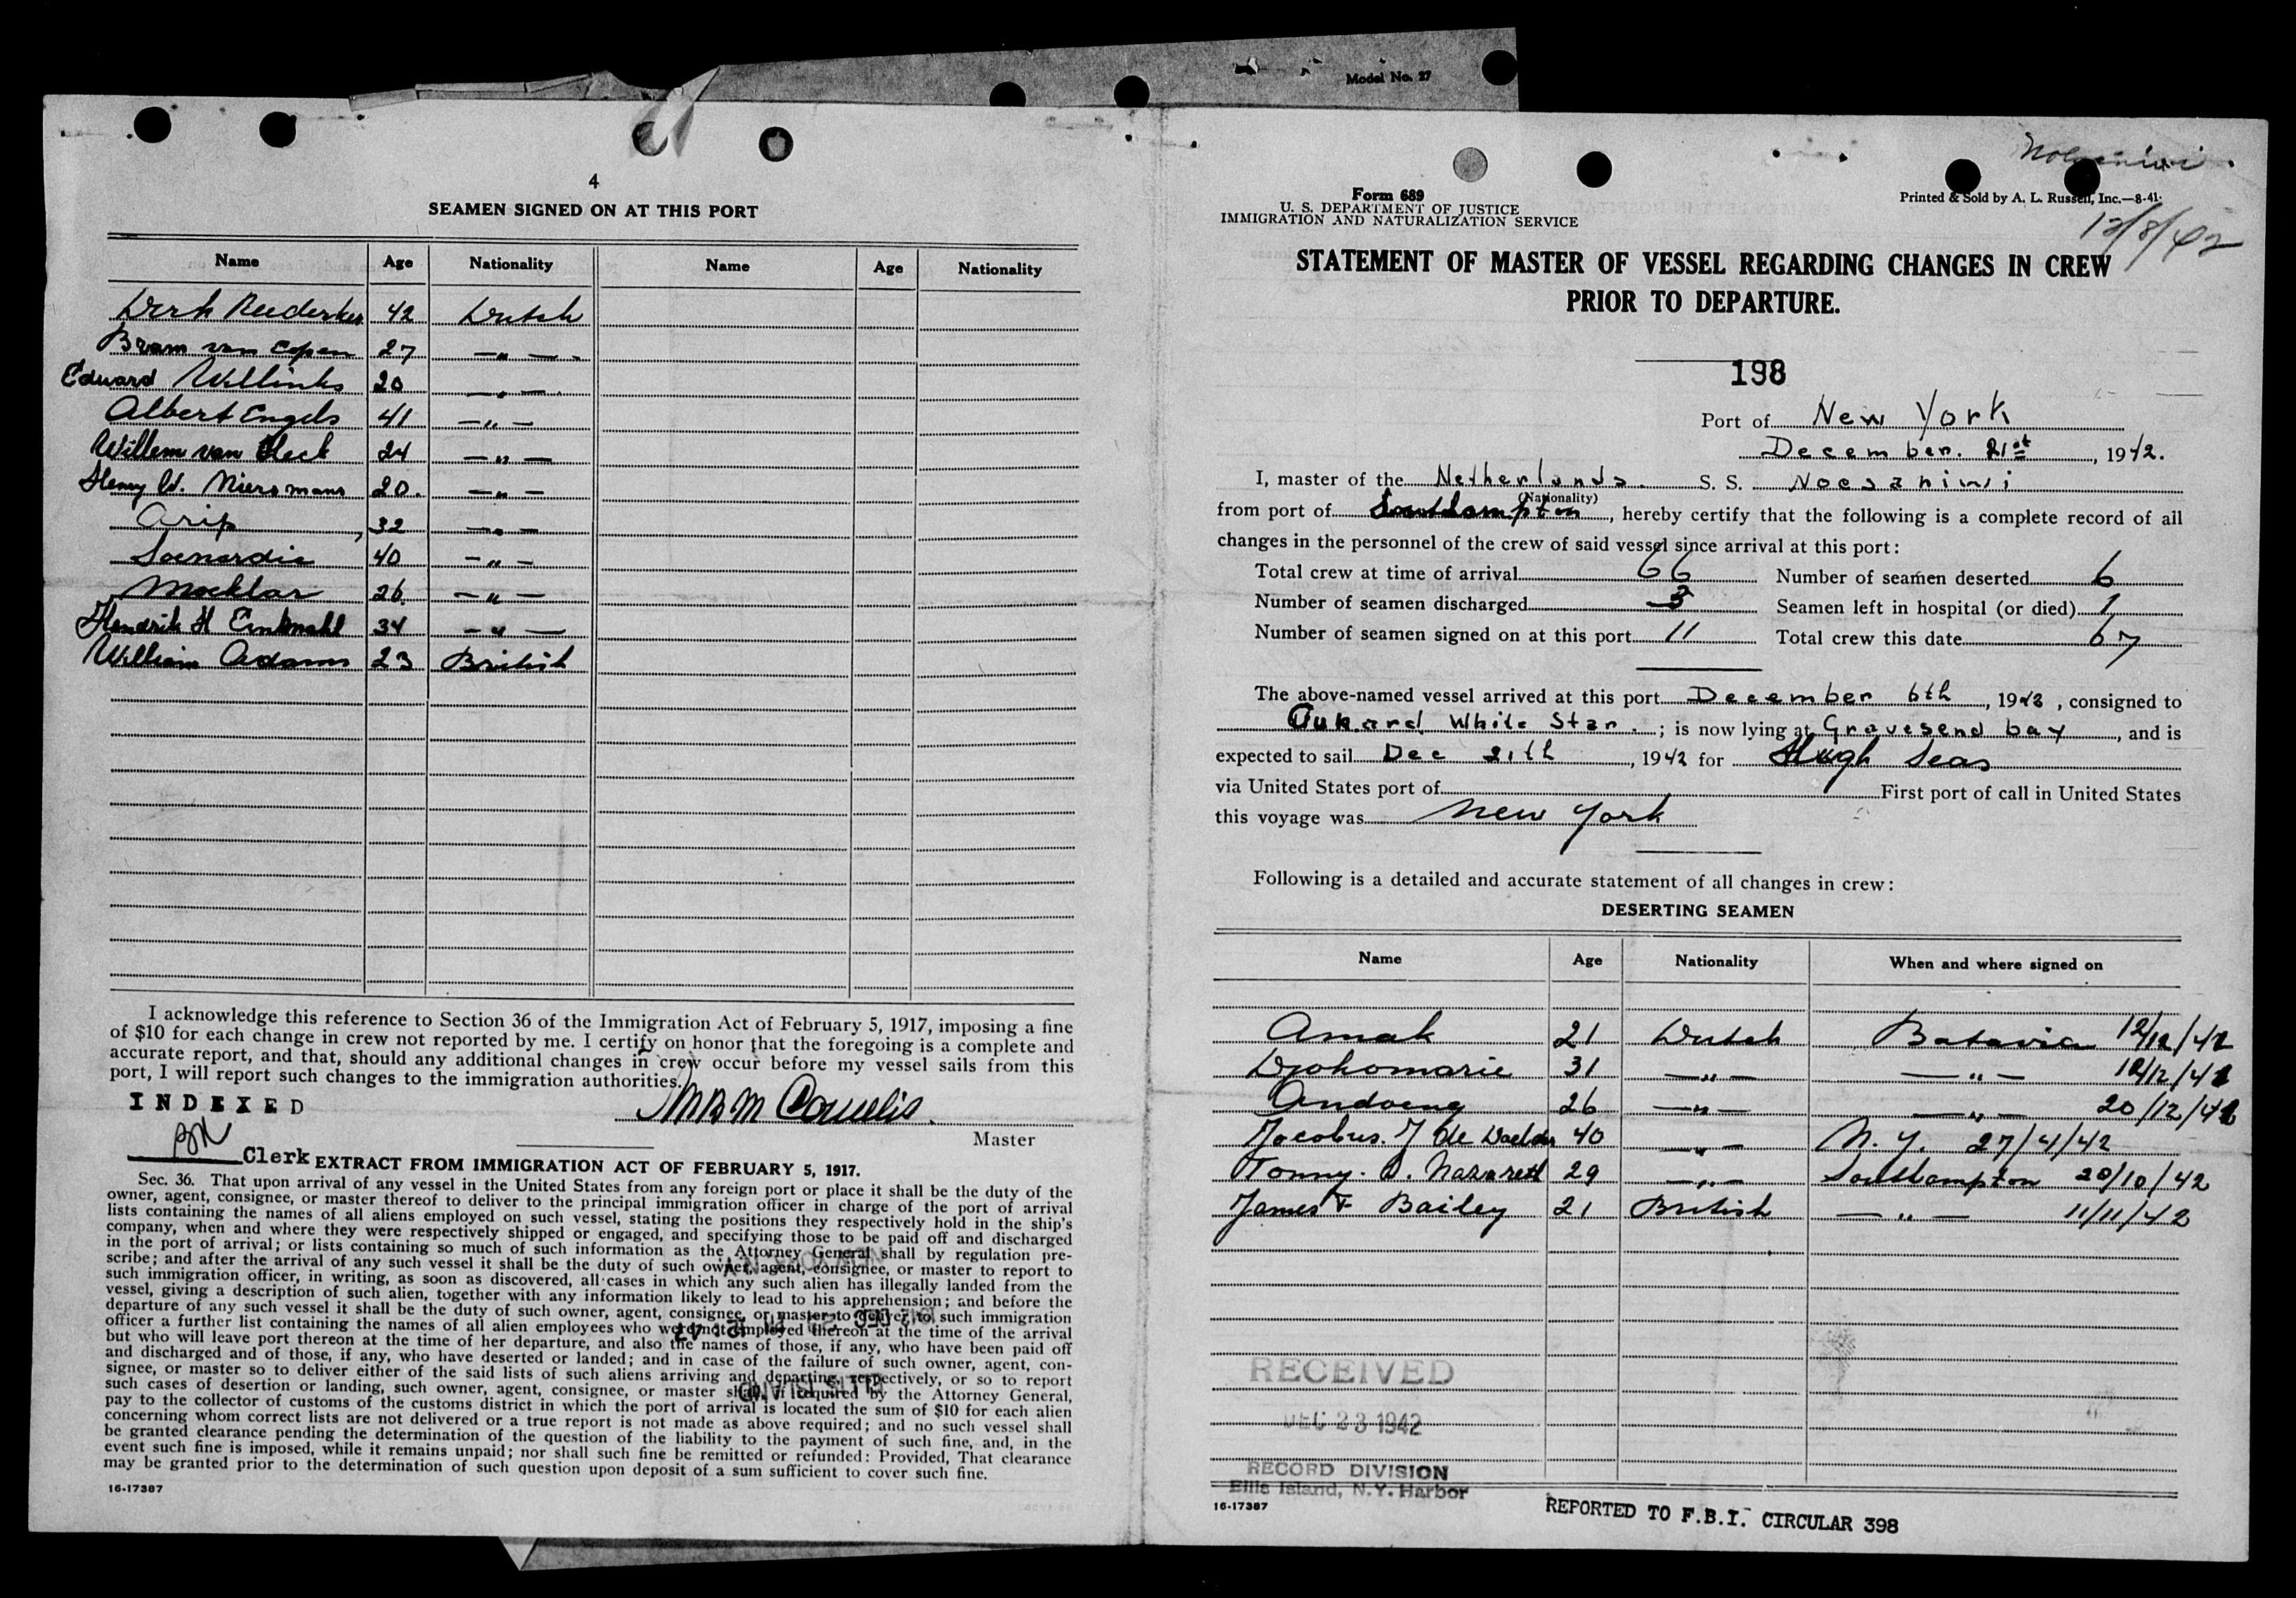 Model No. 27
4
SEAMEN SIGNED ON AT THIS PORT
Name Age Nationality Name Age Nationality
42 Dutch
Bram van Copen 27 —"—
Edward Willinks 20 —"—
Albert Engels 41 —"—
Willem van 24 —"—
Henry W. Niersmans 20. —"—
Arip 32 —"—
Soenardie 40 —"—
Mochtar 26 —"—
Hendrik H 34 —"—
William Adams 23 British
I acknowledge this reference to Section 36 of the Immigration Act of February 5, 1917, imposing a fine
of $10 for each change in crew not reported by me. I certify on honor that the foregoing is a complete and
accurate report, and that, should any additional changes in crew occur before my vessel sails from this
port, I will report such changes to the immigration authorities.
INDEXED
Cornelis.
Master
Clerk
EXTRACT FROM IMMIGRATION ACT OF FEBRUARY 5, 1917.
Sec. 36. That upon arrival of any vessel in the United States from any foreign port or place it shall be the duty of the
owner, agent, consignee, or master thereof to deliver to the principal immigration officer in charge of the port of arrival
lists containing the names of all aliens employed on such vessel, stating the positions they respectively hold in the ship's
company, when and where they were respectively shipped or engaged, and specifying those to be paid off and discharged
in the port of arrival; or lists containing so much of such information as the Attorney General shall by regulation pre-
scribe; and after the arrival of any such vessel it shall be the duty of such owner, agent, consignee, or master to report to
such immigration officer, in writing, as soon as discovered, all cases in which any such alien has illegally landed from the
vessel, giving a description of such alien, together with any information likely to lead to his apprehension; and before the
departure of any such vessel it shall be the duty of such owner, agent, consignee, or master to deliver to such immigration
officer a further list containing the names of all alien employees who were not employed thereon at the time of the arrival
but who will leave port thereon at the time of her departure, and also the names of those, if any, who have been paid off
and discharged and of those, if any, who have deserted or landed; and in case of the failure of such owner, agent, con-
signee, or master so to deliver either of the said lists of such aliens arriving and departing, respectively, or so to report
such cases of desertion or landing, such owner, agent, consignee, or master shall, if required by the Attorney General,
pay to the collector of customs of the customs district in which the port of arrival is located the sum of $10 for each alien
concerning whom correct lists are not delivered or a true report is not made as above required; and no such vessel shall
be granted clearance pending the determination of the question of the liability to the payment of such fine, and, in the
event such fine is imposed, while it remains unpaid; nor shall such fine be remitted or refunded: Provided, That clearance
may be granted prior to the determination of such question upon deposit of a sum sufficient to cover such fine.
16-17387
Form 689
U. S. DEPARTMENT OF JUSTICE
IMMIGRATION AND NATURALIZATION SERVICE
Printed & Sold by A. L. Russell, Inc.—8-41.
12/8/42
STATEMENT OF MASTER OF VESSEL REGARDING CHANGES IN CREW
PRIOR TO DEPARTURE.
198
Port of New York
December. 21st, 1942.
I, master of the Netherlands. S. S. Noesaniwi
(Nationality)
from port of Southampton, hereby certify that the following is a complete record of all
changes in the personnel of the crew of said vessel since arrival at this port:
Total crew at time of arrival 66 Number of seamen deserted 6
Number of seamen discharged 3 Seamen left in hospital (or died) 1
Number of seamen signed on at this port 11 Total crew this date 67
The above-named vessel arrived at this port December 6th, 1942, consigned to
Cunard White Star.; is now lying at Gravesend bay, and is
expected to sail Dec 21th, 1942 for High Seas
via United States port of First port of call in United States
this voyage was New York
Following is a detailed and accurate statement of all changes in crew:
DESERTING SEAMEN
Name Age Nationality When and where signed on
Amak 21 Dutch Batavia 12/12/41
Djohomarie 31 —"— —"— 12/12/41
Andoeng 26 —"— —"— 20/12/41
Jacobus. J de 40 —"— N. Y. 27/4/42
Tonny. D. Nazareth 29 —"— Southampton 20/10/42
James F Bailey 21 British —"— 11/11/42
RECEIVED
DEC 23 1942
RECORD DIVISION
Ellis Island, N.Y. Harbor
16-17387
REPORTED TO F.B.I. CIRCULAR 398